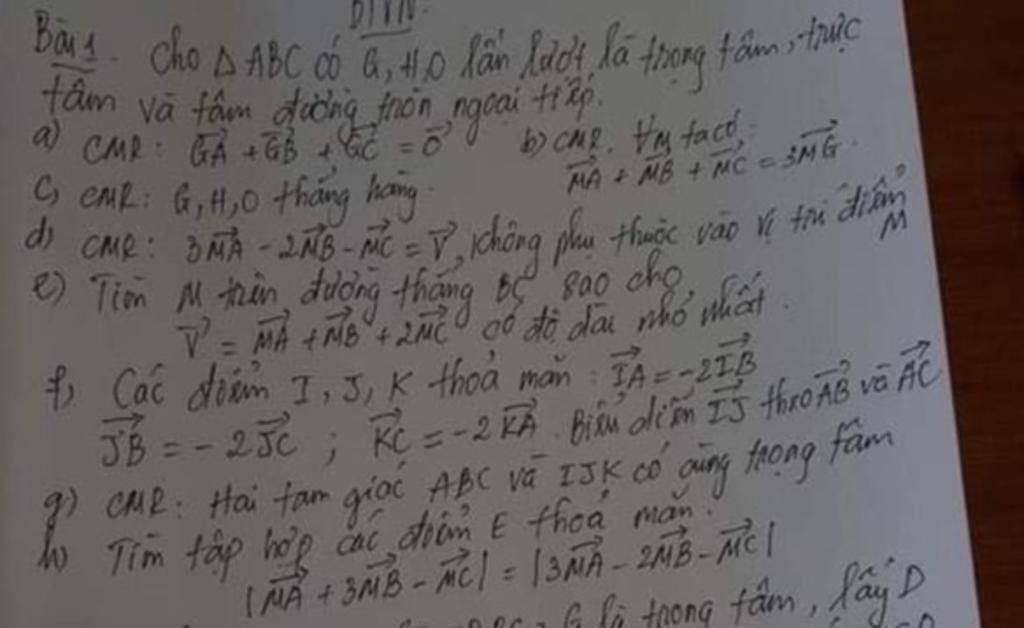 BTVN.
Bài 1. Cho Δ ABC có G, H, O lần lượt là trọng tâm, trực
tâm và tâm đường tròn ngoại tiếp.
a) CMR: \vec{GA} + \vec{GB} + \vec{GC} = \vec{0} b) CMR. ∀M ta có:
\vec{MA} + \vec{MB} + \vec{MC} = 3\vec{MG}.
c, CMR: G, H, O thẳng hàng.
d) CMR: 3\vec{MA} - 2\vec{MB} - \vec{MC} = \vec{V}, không phụ thuộc vào vị trí điểm
M
e) Tìm M trên đường thẳng BC sao cho
\vec{V} = \vec{MA} + \vec{MB} + 2\vec{MC} có độ dài nhỏ nhất.
f, Các điểm I, J, K thoả mãn: \vec{IA} = -2\vec{IB}
\vec{JB} = -2\vec{JC} ; \vec{KC} = -2\vec{KA}. Biểu diễn \vec{IJ} theo \vec{AB} và \vec{AC}
g) CMR: Hai tam giác ABC và IJK có cùng trọng tâm
h) Tìm tập hợp các điểm E thoả mãn.
|\vec{MA} + 3\vec{MB} - \vec{MC}| = |3\vec{MA} - 2\vec{MB} - \vec{MC}|
G là trọng tâm, lấy D